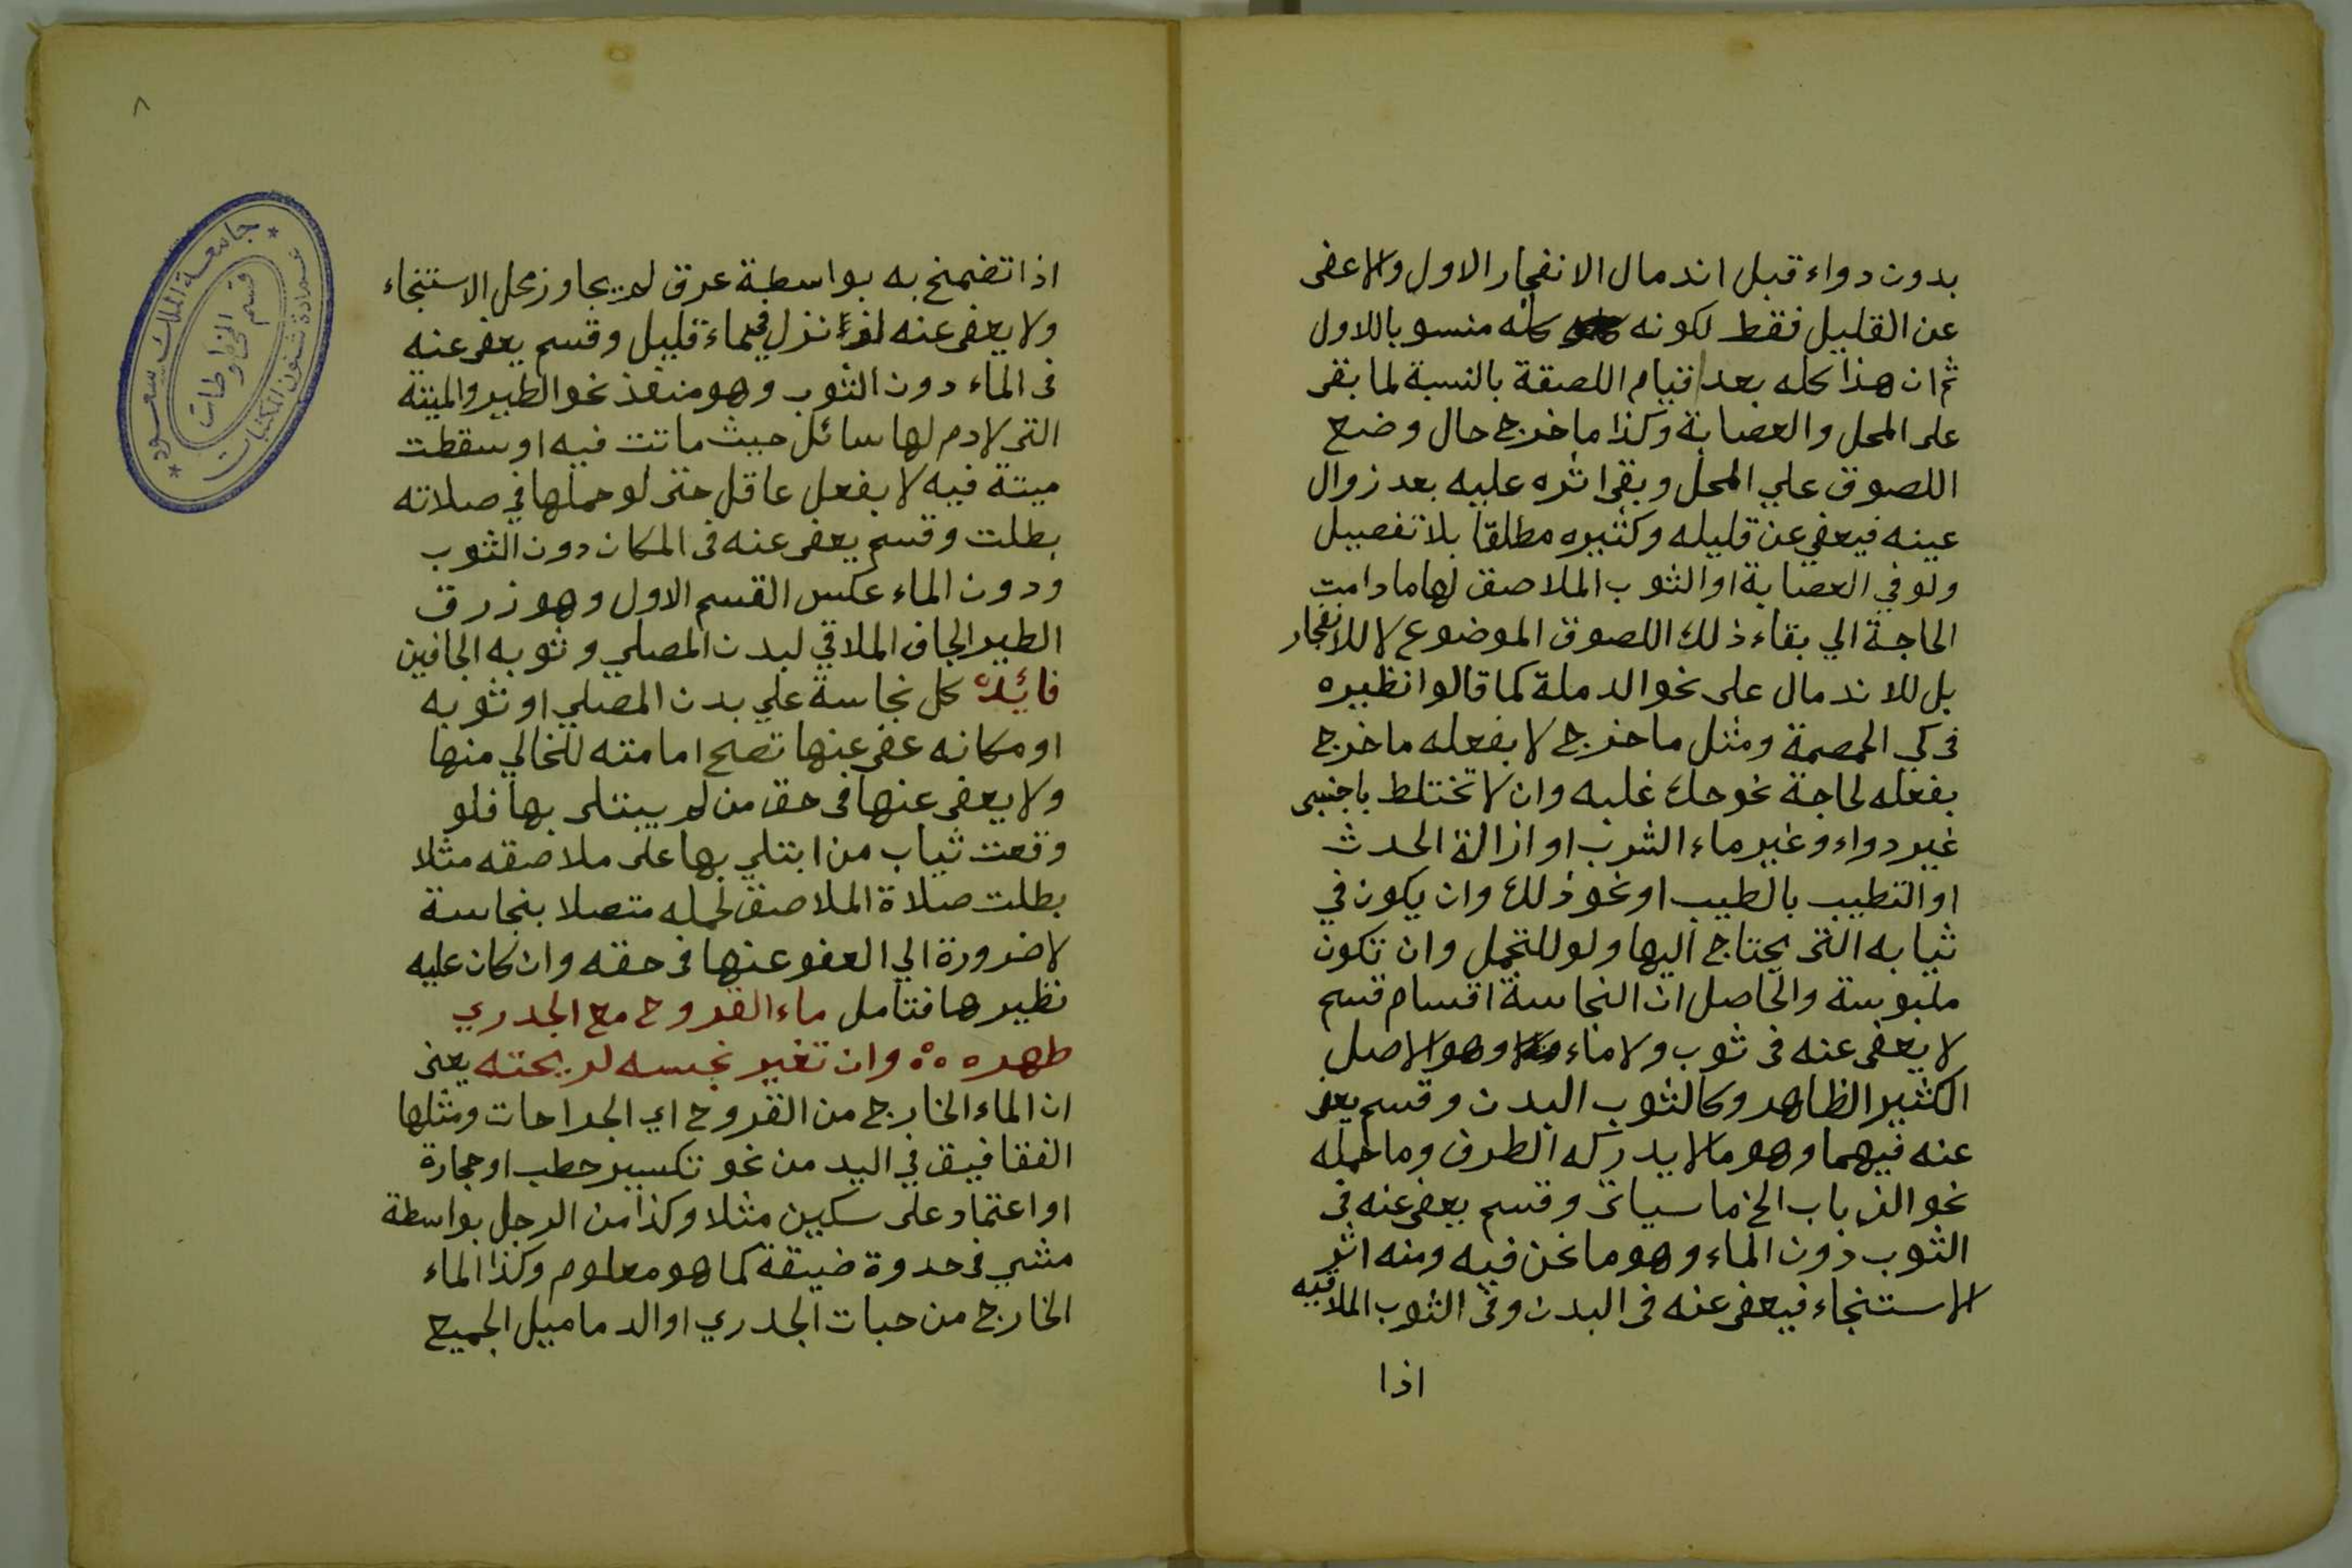 بدون دواء قبل اندمال الانفجار الاول والاعفى
عن القليل فقط لكونه كله منسوبا للاول
ثم ان هذا كله بعد قيام اللصقة بالنسبة لما بقى
على المحل والعصابة وكذا ما خرج حال وضع
اللصوق علي المحل وبقى اثره عليه بعد زوال
عينه فيعفى عن قليله وكثيره مطلقا بلا تفصيل
ولو في العصابة او الثوب الملاصق لها ما دامت
الحاجة الي بقاء ذلك اللصوق الموضوع لا للانفجار
بل للاندمال على نحو الدملة كما قالوا نظيره
فى كي الحمصة ومثل ما خرج لا بفعله ما خرج
بفعله لحاجة نحو حك غلبه وان لا تختلط باجنبى
غير دواء وغير ماء الشرب او ازالة الحدث
او التطيب بالطيب او نحو ذلك وان يكون في
ثيابه التى يحتاج اليها ولو للتجمل وان تكون
ملبوسة والحاصل ان النجاسة اقسام قسم
لا يعفى عنه فى ثوب ولا ماء وهو الاصل
الكثير الظاهر وكالثوب البدن وقسم يعفى
عنه فيهما وهو مالا يدركه الطرف وما حمله
نحو الذباب الخ ما سياتى وقسم يعفى عنه فى
الثوب دون الماء وهو ما نحن فيه ومنه اثر
الاستنجاء فيعفى عنه فى البدن وفى الثوب الملاقيه
اذا
٨
اذا تضمخ به بواسطة عرق لم يجاوز محل الاستنجاء
ولا يعفى عنه لو نزل في ماء قليل وقسم يعفى عنه
فى الماء دون الثوب وهو منفذ نحو الطير والميتة
التى لا دم لها سائل حيث ماتت فيه او سقطت
ميتة فيه لا بفعل عاقل حتى لو حملها في صلاته
بطلت وقسم يعفى عنه فى المكان دون الثوب
ودون الماء عكس القسم الاول وهو زرق
الطير الجاف الملاقي لبدن المصلي وثوبه الجافين
فائدة كل نجاسة علي بدن المصلي او ثوبه
او مكانه عفى عنها تصح امامته للخالي منها
ولا يعفى عنها فى حق من لم يبتلى بها فلو
وقعت ثياب من ابتلي بها على ملاصقه مثلا
بطلت صلاة الملاصق لحمله متصلا بنجاسة
لا ضرورة الي العفو عنها فى حقه وان كان عليه
نظيرها فتامل ماء القروح مع الجدري
طهره ۰۰ وان تغير نجسه لريحته يعنى
ان الماء الخارج من القروح اي الجراحات ومثلها
الفقافيق في اليد من نحو تكسير حطب او حجارة
او اعتماد على سكين مثلا وكذا من الرجل بواسطة
مشي فى حدوة ضيقة كما هو معلوم وكذا الماء
الخارج من حبات الجدري او الدماميل الجميع
جامعة الملك سعود
عمادة شئون المكتبات
قسم المخطوطات